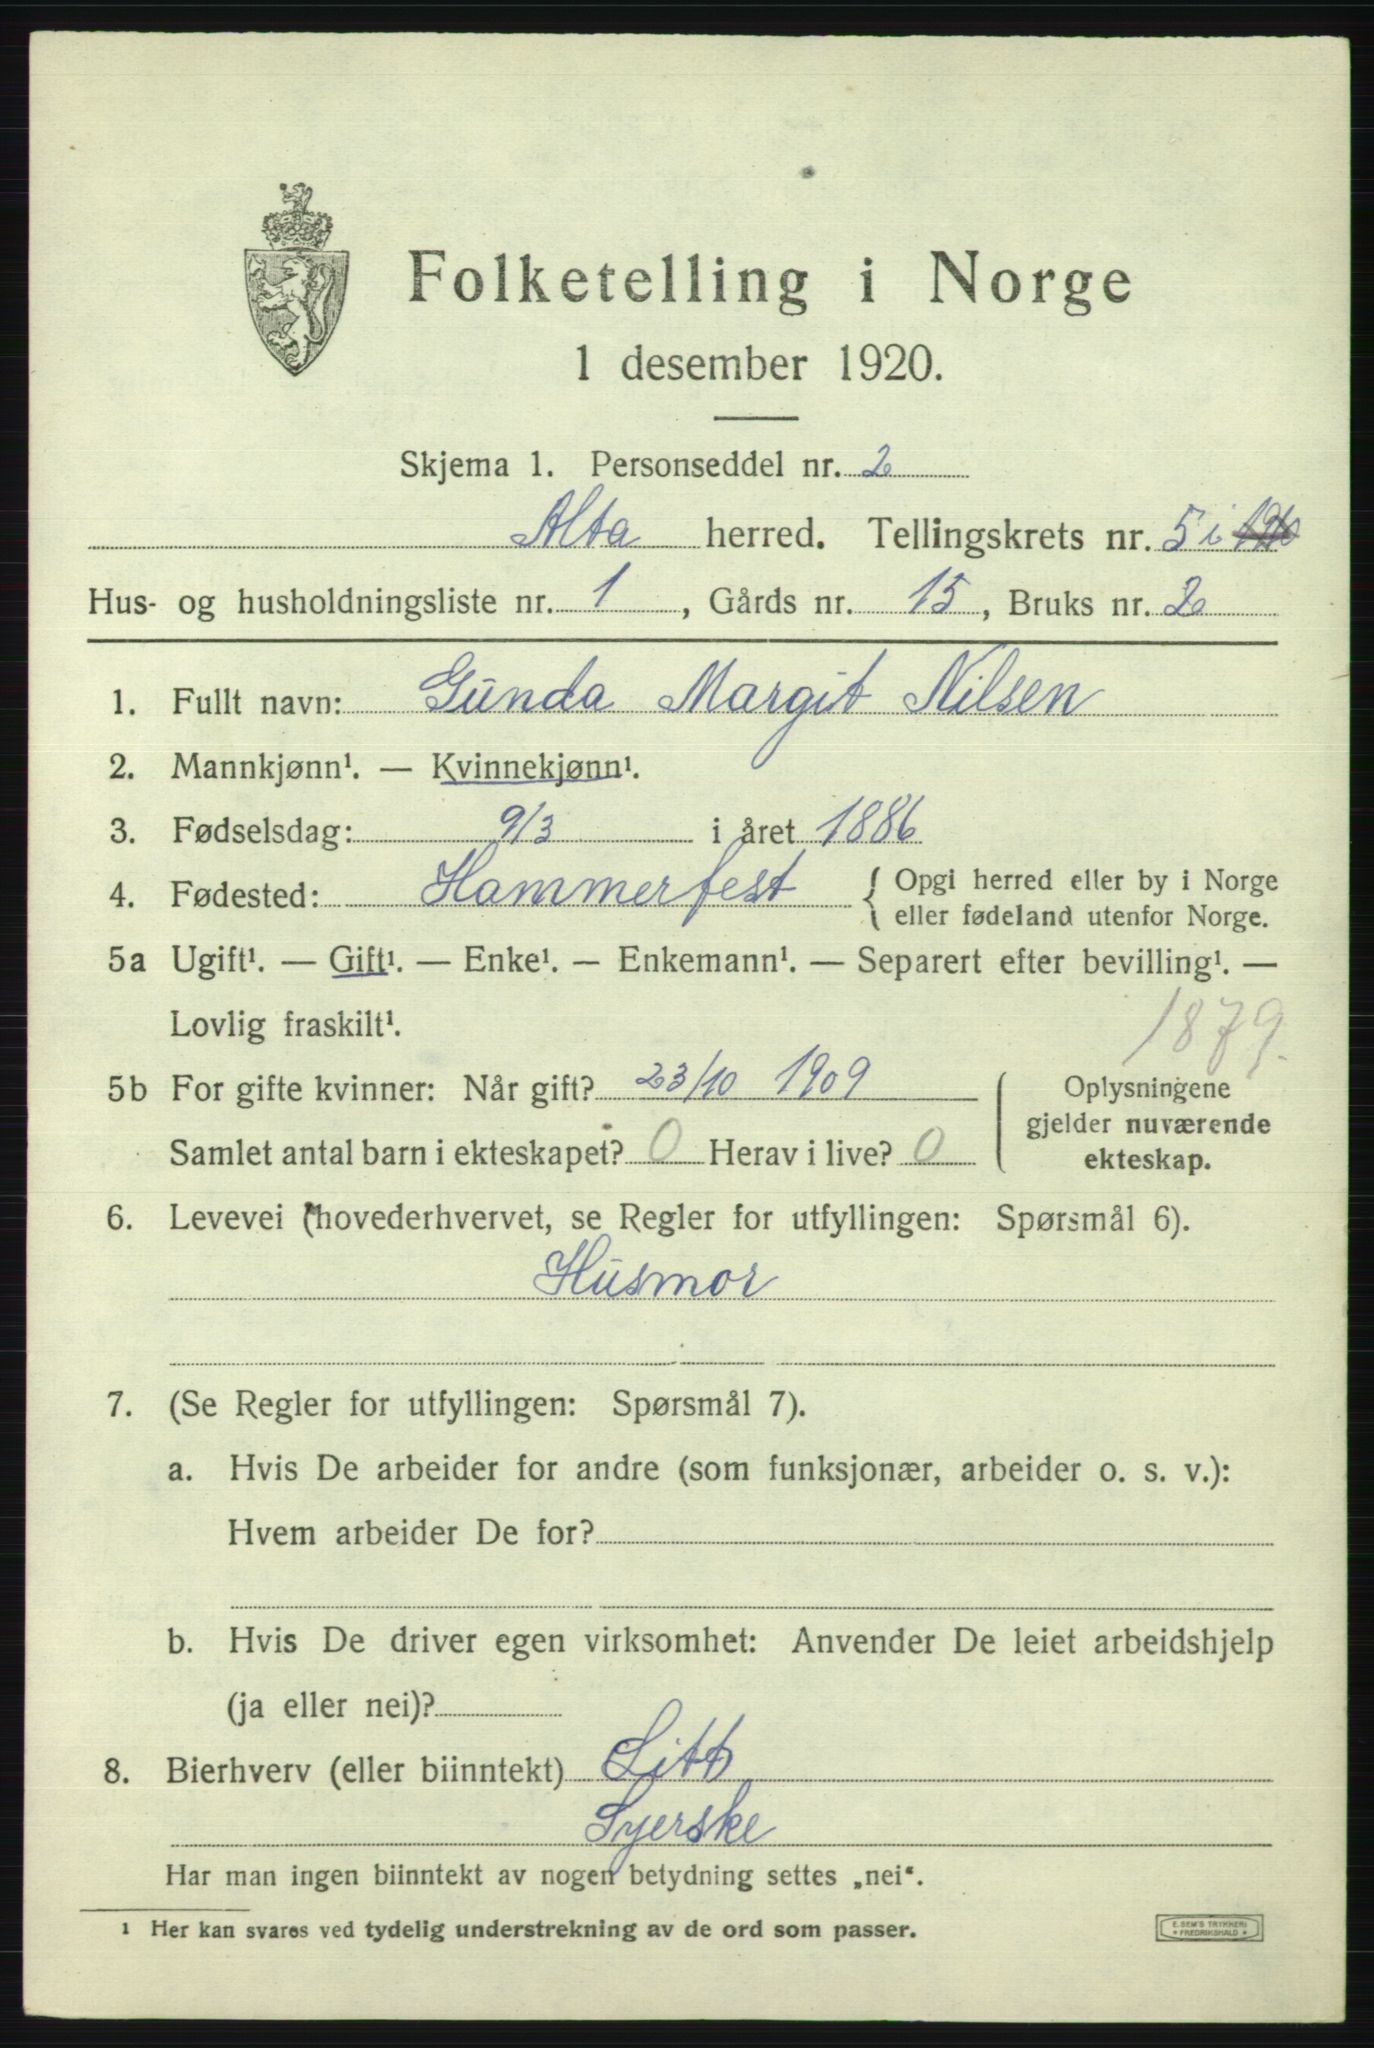 Folketelling i Norge
1 desember 1920.
Skjema 1. Personseddel nr. 2
Alta herred. Tellingskrets nr. 5 i
Hus- og husholdningsliste nr. 1, Gårds nr. 15, Bruks nr. 2
1. Fullt navn: Gunda Margit Nilsen
2. Mannkjønn¹. — Kvinnekjønn¹.
3. Fødselsdag: 9/3 i året 1886
4. Fødested: Hammerfest { Opgi herred eller by i Norge
eller fødeland utenfor Norge.
5a Ugift¹. — Gift¹. — Enke¹. — Enkemann¹. — Separert efter bevilling¹. —
Lovlig fraskilt¹.
1879.
5b For gifte kvinner: Når gift? 23/10 1909
Samlet antal barn i ekteskapet? 0 Herav i live? 0
Oplysningene
gjelder nuværende
ekteskap.
6. Levevei (hovederhvervet, se Regler for utfyllingen: Spørsmål 6).
Husmor
7. (Se Regler for utfyllingen: Spørsmål 7).
a. Hvis De arbeider for andre (som funksjonær, arbeider o. s. v.):
Hvem arbeider De for?
b. Hvis De driver egen virksomhet: Anvender De leiet arbeidshjelp
(ja eller nei)?
8. Bierhverv (eller biinntekt) Litt
Syerske
Har man ingen biinntekt av nogen betydning settes „nei“.
¹ Her kan svares ved tydelig understrekning av de ord som passer.
E. SEM'S TRYKKERI
* FREDRIKSHALD *